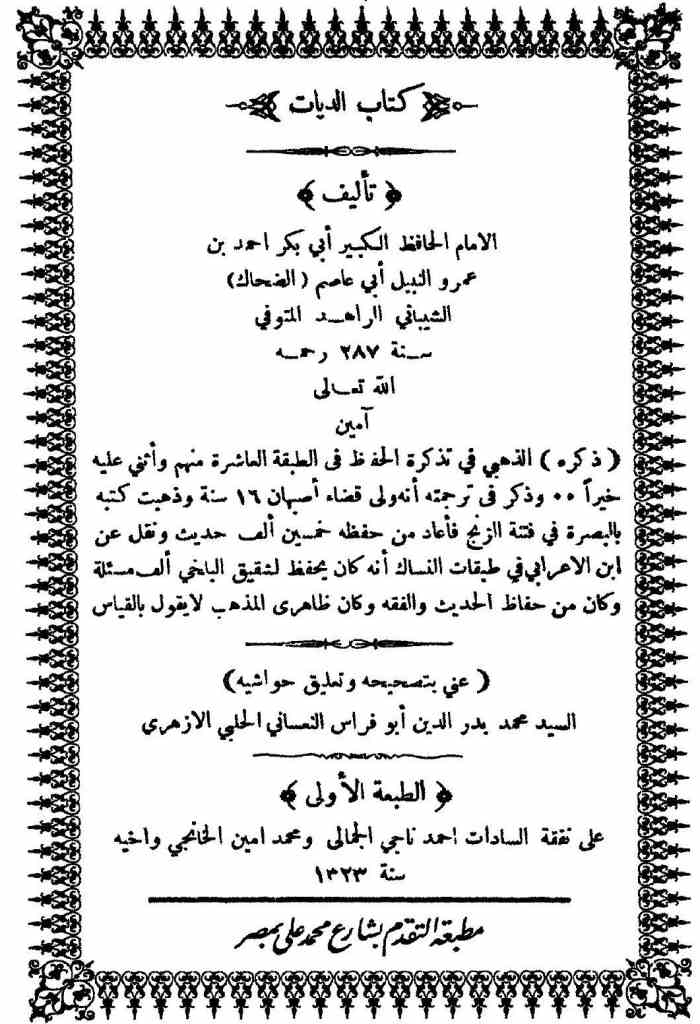 كتاب الديات
﴿ تأليف ﴾
الامام الحافظ الكبير أبي بكر احمد بن
عمرو النبيل أبي عاصم ( الضحاك )
الشيباني الزاهد المتوفي
سنة ٢٨٧ رحمه
الله تعالى
آمين
( ذكره ) الذهبي في تذكرة الحفظ فى الطبقة العاشرة منهم وأثني عليه
خيراً ٠٠ وذكر فى ترجمته أنه ولى قضاء أصبهان ١٦ سنة وذهبت كتبه
بالبصرة في فتنة الزنج فأعاد من حفظه خمسين ألف حديث ونقل عن
ابن الاعرابي في طبقات النساك أنه كان يحفظ لشقيق البلخي ألف مسئلة
وكان من حفاظ الحديث والفقه وكان ظاهرى المذهب لا يقول بالقياس
( عني بتصحيحه وتعليق حواشيه )
السيد محمد بدر الدين أبو فراس النعساني الحلبي الازهرى
﴿ الطبعة الأولى ﴾
على نفقة السادات احمد ناجي الجمالى ومحمد امين الخانجي واخيه
سنة ١٣٢٣
مطبعة التقدم بشارع محمد على بمصر